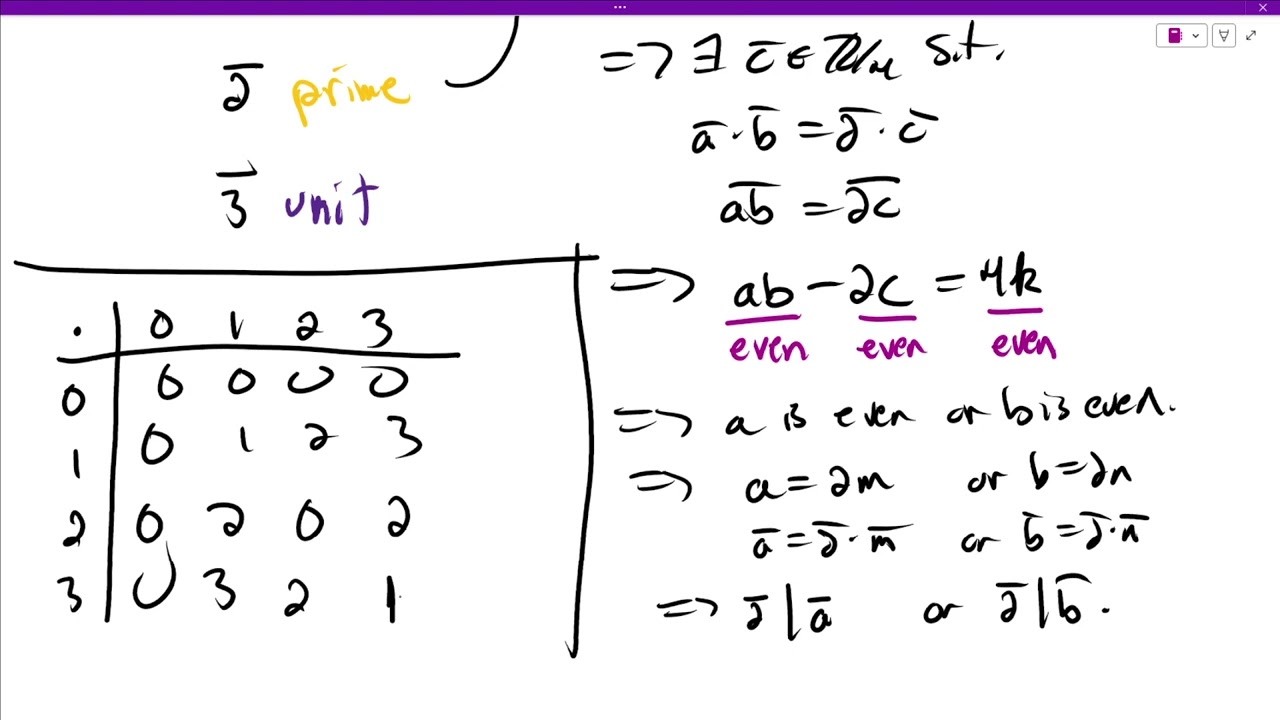 2̅ prime
3̅ unit
· | 0 1 2 3
0 | 0 0 0 0
1 | 0 1 2 3
2 | 0 2 0 2
3 | 0 3 2 1
=> ∃ c̅ ∈ ℤ/4 s.t.
a̅ · b̅ = 2̅ · c̅
a̅b̅ = 2̅c̅
=> ab - 2c = 4k
even even even
=> a is even or b is even.
=> a = 2m or b = 2n
a̅ = 2̅ · m̅ or b̅ = 2̅ · n̅
=> 2̅ | a̅ or 2̅ | b̅ .